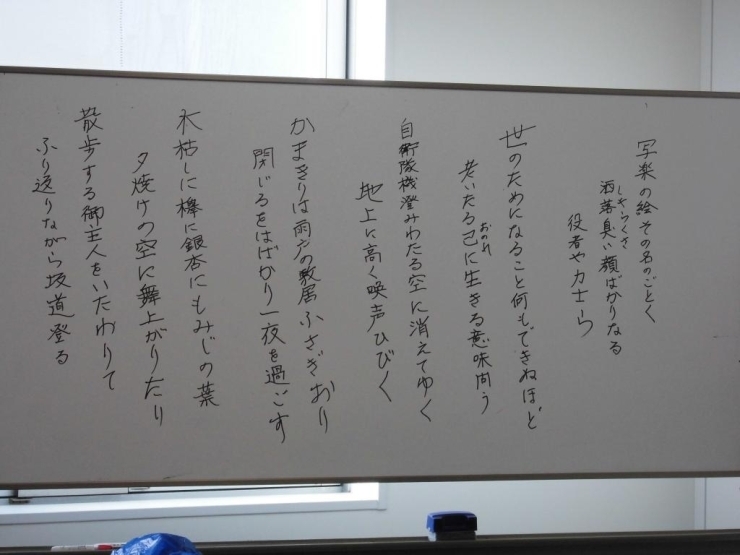 写楽の絵その名のごとく
洒落臭い顔ばかりなる
しゃらくさ
役者や力士ら
世のためになること何もできぬほど
老いたる己に生きる意味問う
おのれ
自衛隊機澄みわたる空に消えてゆく
地上に高く喚声ひびく
かまきりは雨戸の敷居ふさぎおり
閉じるをはばかり一夜を過ごす
木枯しに欅に銀杏にもみじの葉
夕焼けの空に舞上がりたり
散歩する御主人をいたわりて
ふり返りながら坂道登る